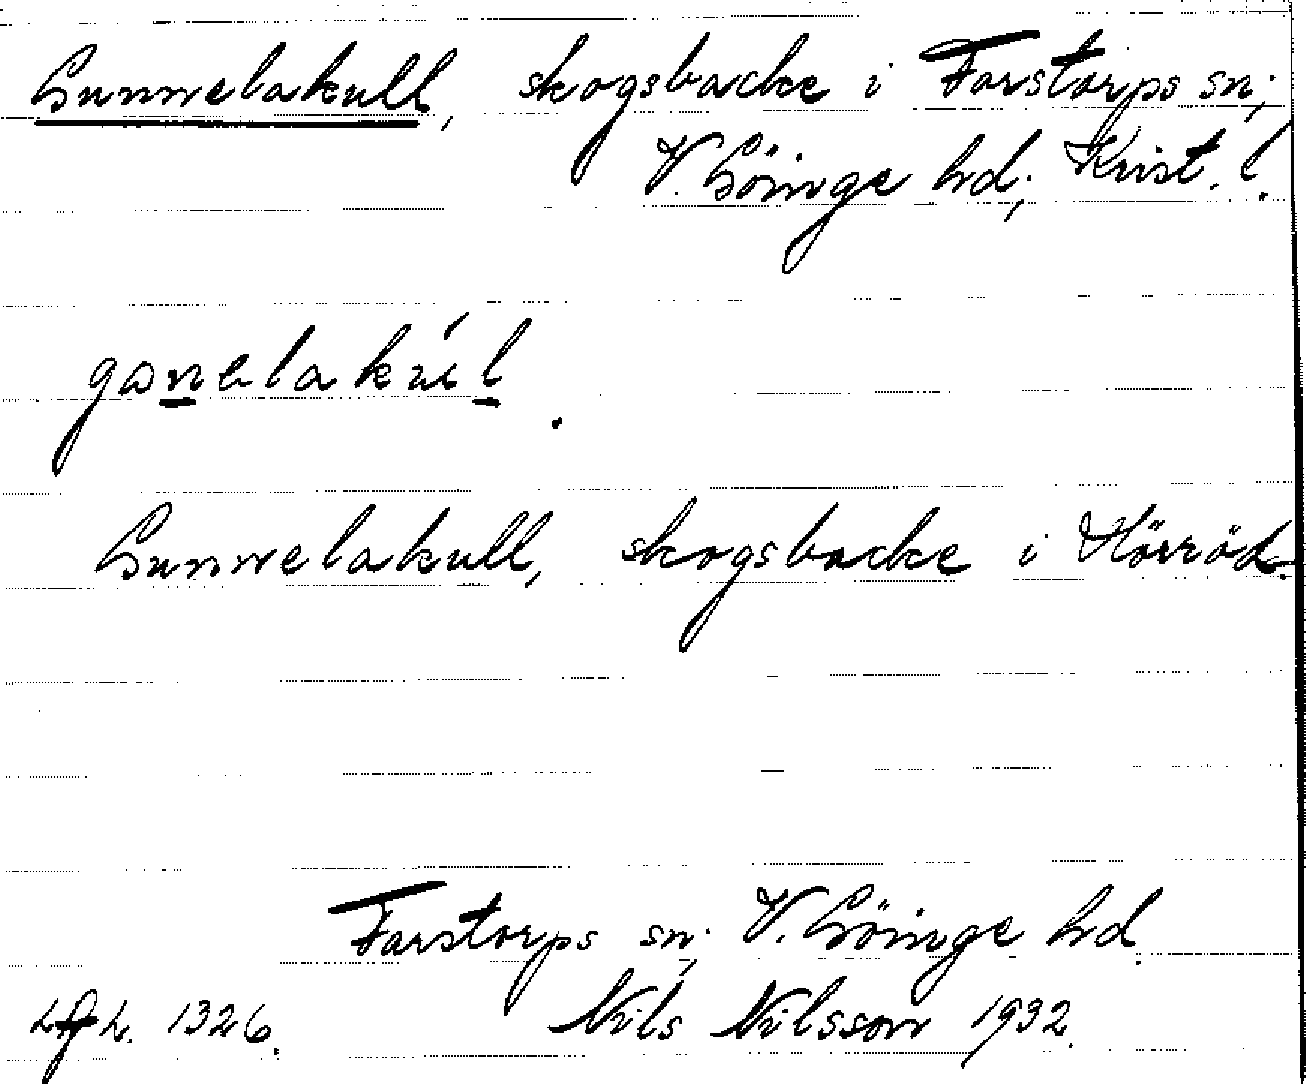 Gunnelakull, skogsbacke i Farstorps sn;
V. Göinge hd; Krist. l.
gɷnelakúl.
Gunnelakull, skogsbacke i Hörröd.
Farstorps sn; V. Göinge hd.
1326.
Nils Nilsson 1932.